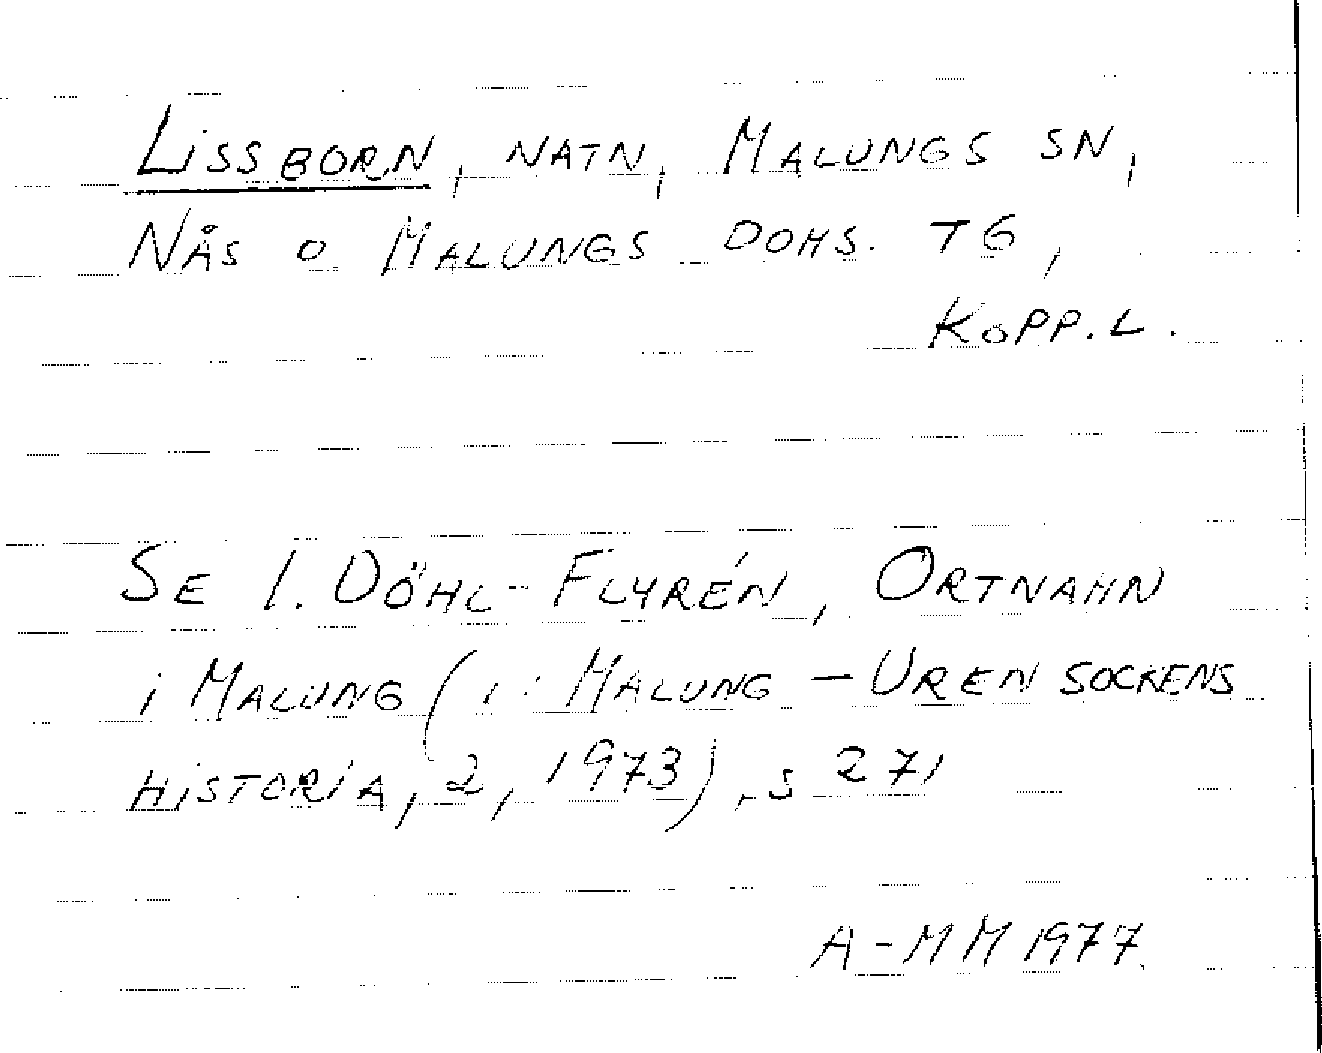 LISSBORN, NATN, MALUNGS SN,
NÅS O MALUNGS DOMS. TG,
KOPP. L.
SE I. DÖHL-FLYRÉN, ORTNAMN
i MALUNG (i: MALUNG – UR EN SOCKENS
HISTORIA, 2, 1973), S 271
A-MM 1977.